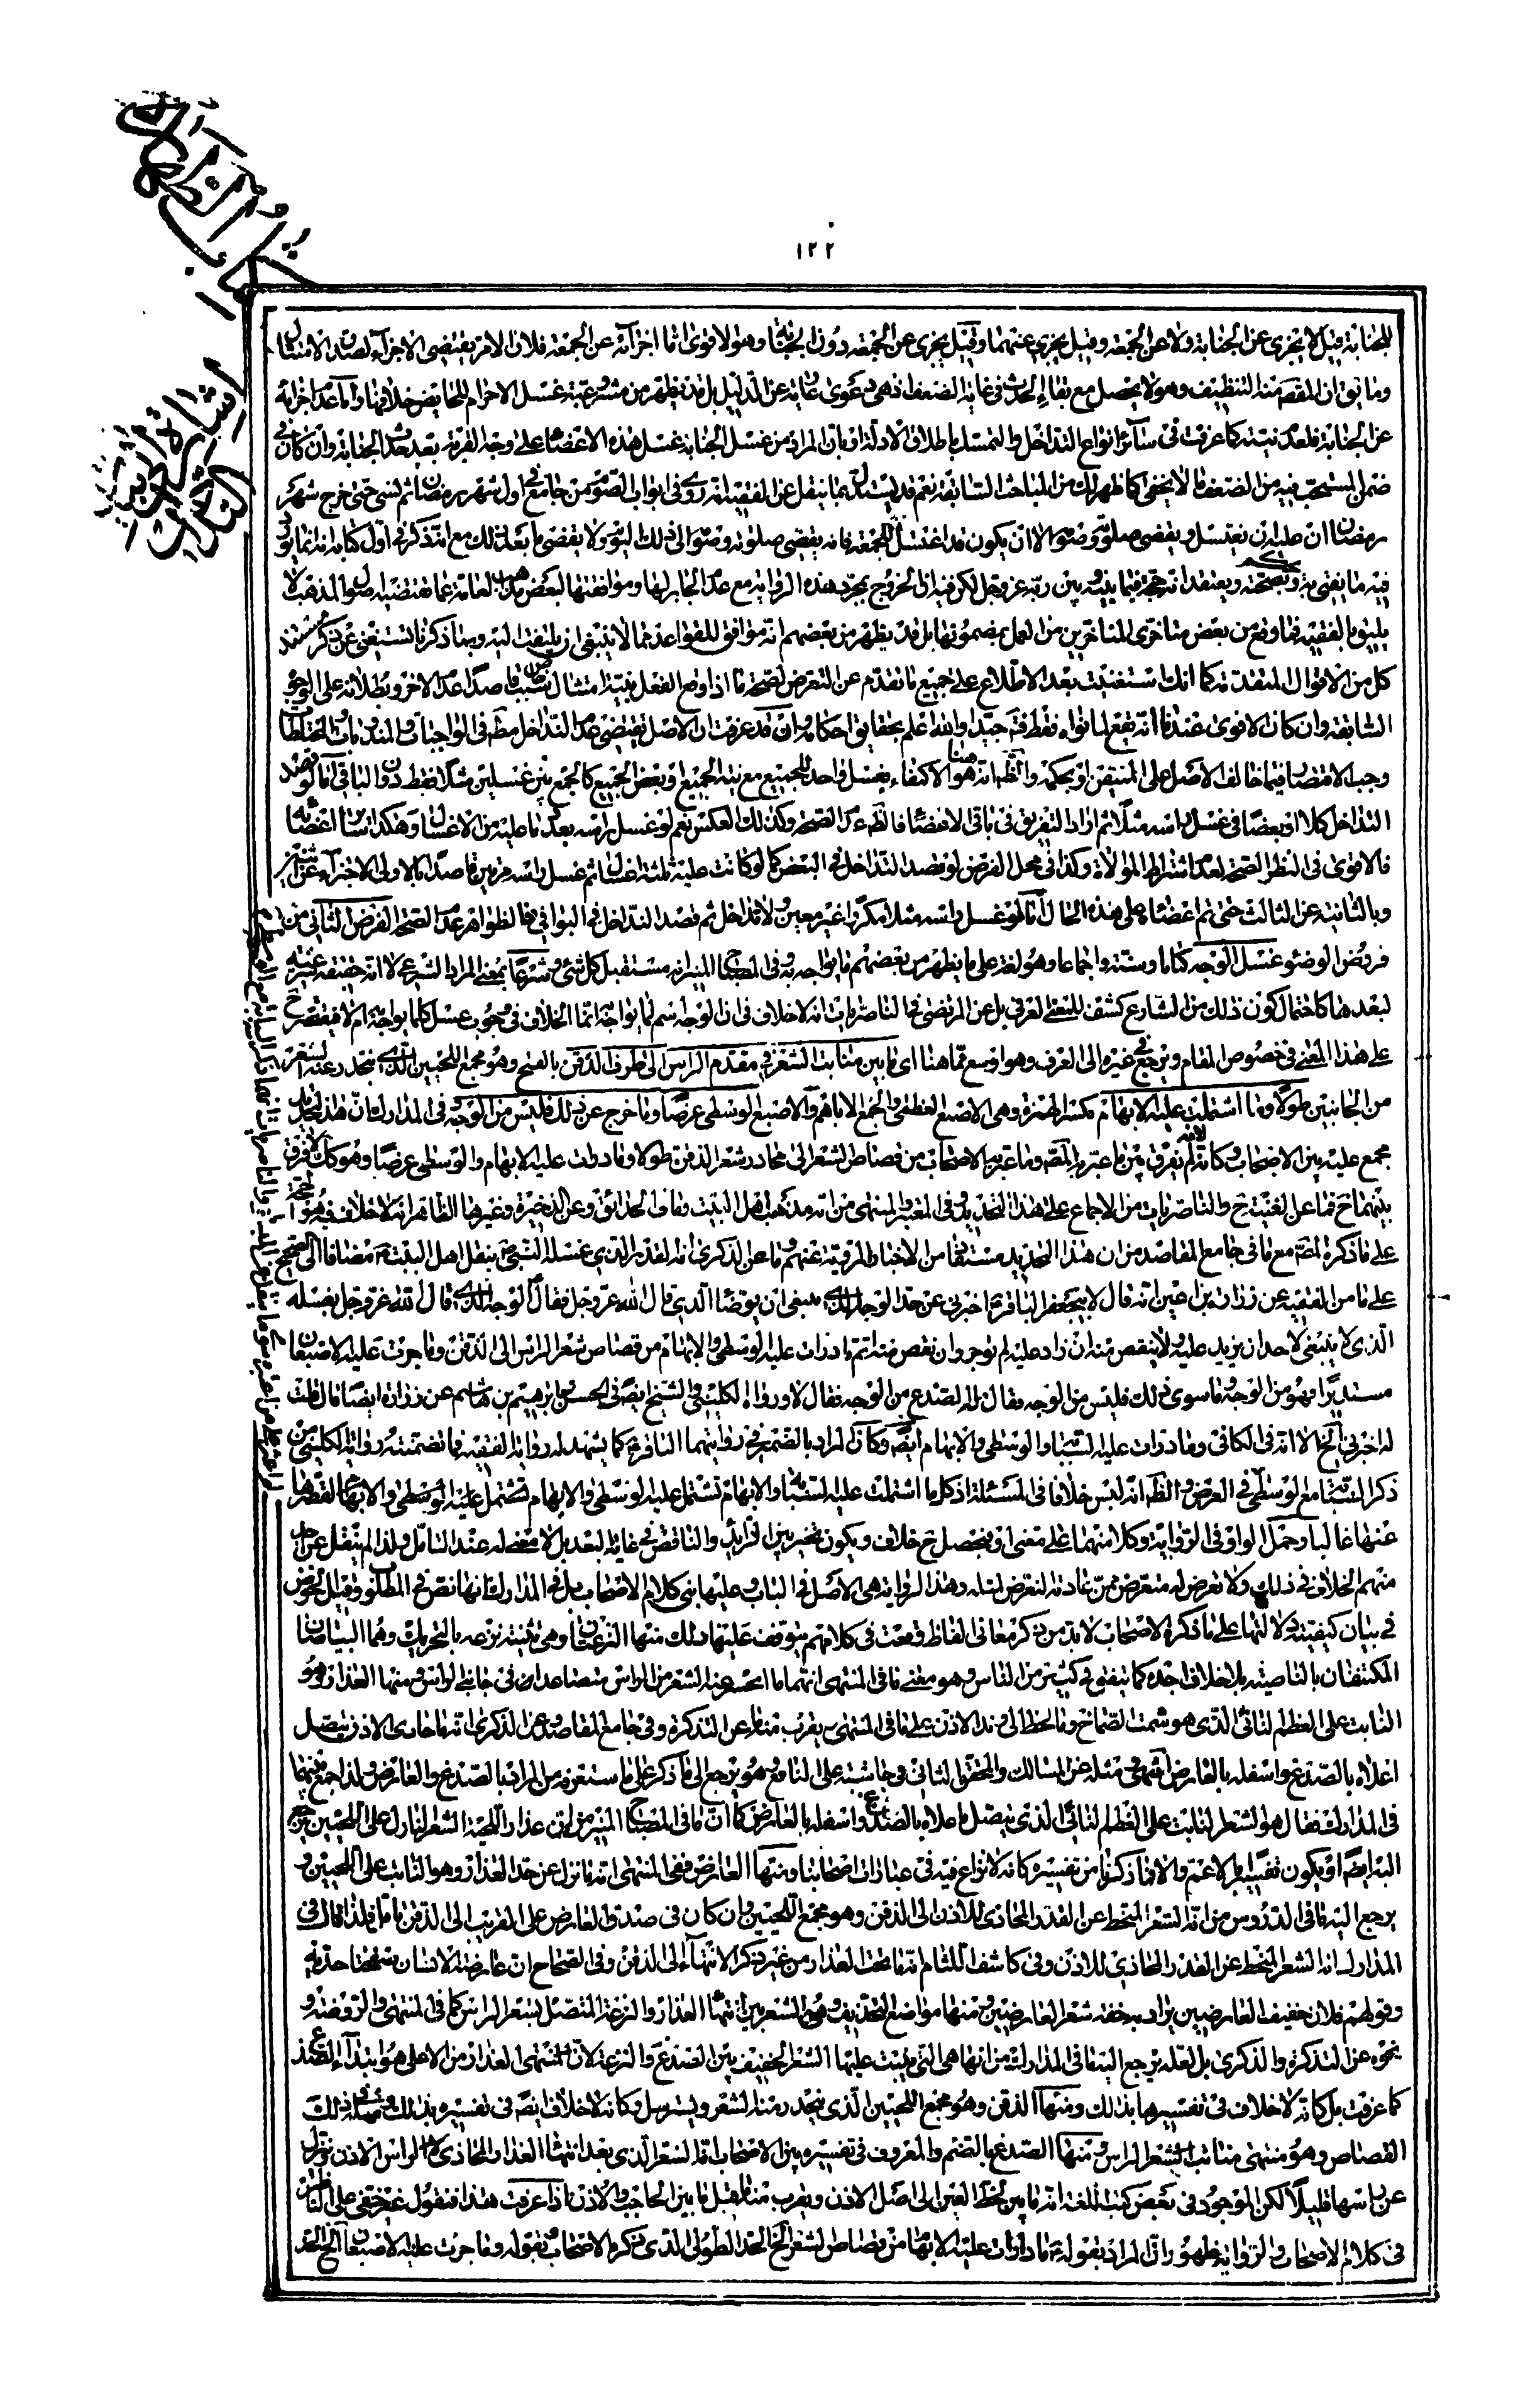 كتاب الطهارة
١٢٢
للجنابة قيل لا يجزى عن الجنابة ولا عن الجمعة وقيل يجزى عنهما وقيل يجزى عن الجمعة دون الجنابة وهو الاقوى اما اجزائه عن الجمعة فلان الامر يقتضى الاجزاء لصدق الامتثال
وما يق ان المقصد منه التنظيف وهو لا يحصل مع بقاء الحدث فى غاية الضعف اذ هى دعوى عارية عن الدليل بل قد يظهر من مشروعية غسل الاحرام للحايض خلافها واما عدم اجزائه
عن الجنابة فلعدم نيته كما عرفت فى سائر انواع التداخل والتمسك باطلاق الادلة او بان المراد من غسل الجنابة غسل هذه الاعضاء على وجه القربة بعد حدث الجنابة وان كان فى
ضمن المستحب فيه من الضعف ما لا يخفى كما ظهر لك من المباحث السابقة نعم قد يستدل بما ينقل عن الفقيه انه روى فى ابواب الصوم من جامع فى اول شهر رمضان ثم نسى حتى خرج شهر
رمضان ان عليه ان يغتسل ويقضى صلوته وصومه الا ان يكون قد اغتسل للجمعة فانه يقضى صلوته وصومه الى ذلك اليوم ولا يقضى ما بعد ذلك مع انه ذكر فى اول كتابه انه انما يورد
فيه ما يفتى به ويحكم بصحته ويعتقد انه حجة فيما بينه وبين ربه عز وجل لكن فيه ان الخروج بمجرد هذه الرواية مع عدم الجابر لها وموافقتها لبعض مذاهب العامة عما تقتضيه اصول المذهب لا
يليق بالفقيه فما وقع من بعض متاخرى المتاخرين من العمل بمضمونها بل قد يظهر من بعضهم انه موافق للقواعد مما لا ينبغى ان يلتفت اليه وبما ذكرنا تستغنى عن ذكر مستند
كل من الاقوال المتقدمة كما انك تستغنيت بعد الاطلاع على جميع ما تقدم عن التعرض لصحة ما اذا وقع الفعل بنية امتثال سبب خاص قاصدا عدم الاخر وبطلانه على الوجوه
السابقة وان كان الاقوى عندنا انه يقع لما نواه فقط فتأمل جيدا والله اعلم بحقايق احكامه وان قد عرفت ان الاصل يقتضى عدم التداخل مطلقا فى الواجبات والمندوبات والمختلطات
وجب الاقتصار فيما خالف الاصل على المتيقن او بحكمه والظاهر انه هو هنا الاكتفاء بغسل واحد للجميع مع نية الجميع او بعض الجميع كالجمع بين غسلين مثلا فقط دون الباقى اما لو قصد
التداخل كلا او بعضا فى غسل راسه مثلا ثم اراد التفريق فى باقى الاعضاء فالظاهر عدم الصحة وكذلك العكس نعم لو غسل راسه بعدد ما عليه من الاغسال وهكذا سائر اعضائه
فالاقوى فى النظر الصحة لعدم اشتراط الموالاة وكذا فى محل الفرض لو قصد التداخل فى البعض كما لو كانت عليه ثلثة اغسال ثم غسل راسه مرتين قاصدا بالاولى الاجتزاء عن اثنين
وبالثانية عن الثالث حتى تم اعضائه على هذه الحال اما لو غسل راسه مثلا مكررا غير معين ولا تداخل ثم قصد التداخل فى البواقى فالظاهر عدم الصحة الفرض الثانى من
فروض الوضوء غسل الوجه كتابا وسنة واجماعا وهو لغة على ما يظهر من بعضهم ما يواجه به وفى المصباح المنير انه مستقبل كل شئ وشرعا بمعنى المراد الشرعى لا انه حقيقة شرعية
لبعدها كاحتمال كون ذلك من الشارع كشف للمعنى العرفى بل عن المرتضى فى الناصريات انه لا خلاف فى ان الوجه اسم لما يواجه انما الخلاف فى وجوب غسل كلما يواجه ام لا فيقتصر ح
على هذا المعنى فى خصوص المقام ويرجع فى غيره الى العرف وهو اوسع مما هنا اى ما بين منابت الشعر فى مقدم الراس الى طرف الذقن بالفتح وهو مجمع اللحيين الذى ينحدر عنه الشعر
من الجانبين طولا وما اشتملت عليه الابهام بكسر الهمزة وهى الاصبع العظمى والجمع الاباهم والاصبع الوسطى عرضا وما خرج عن ذلك فليس من الوجه فى المدارك ان هذا التحديد
مجمع عليه بين الاصحاب وكانه لم يفرق بين ما عبر به المصنف وما عبر به الاصحاب من قصاص الشعر الى محادر شعر الذقن طولا وما دارت عليه الابهام والوسطى عرضا وهو كذلك لا فرق
بينهما ح فما عن الغنية والناصريات من الاجماع على هذا التحديد وفى المعتبر والمنتهى من انه مذهب اهل البيت وما فى الحدائق وعن الذخيرة وغيرها الظاهر انه لا خلاف فيه هو الحجة
على ما ذكره المصنف مع ما فى جامع المقاصد من ان هذا التحديد مستفاد من الاخبار المروية عنهم وما عن الذكرى انه القدر الذى غسله النبى بنقل اهل البيت مضافا الى الصحيح
على ما من الفقيه عن زرارة بن اعين انه قال لابى جعفر الباقر اخبرنى عن حد الوجه الذى ينبغى ان يوضا الذى قال الله عز وجل فقال الوجه الذى قال الله عز وجل بغسله
الذى لا ينبغى لاحد ان يزيد عليه ولا ينقص منه ان زاد عليه لم يوجر وان نقص منه اثم ما دارت عليه الوسطى والابهام من قصاص شعر الراس الى الذقن وما جرت عليه الاصبعان
مستديرا فهو من الوجه وما سوى ذلك فليس من الوجه فقال زرارة الصدغ من الوجه فقال لا ورواه الكلينى والشيخ ايضا فى الحسن بابرهيم بن هاشم عن زرارة ايضا قال قلت
له اخبرنى الخ الا انه فى الكافى وما دارت عليه السبابة والوسطى والابهام ايضا وكان المراد بالضمير فى روايتهما الباقر كما يشهد له رواية الفقيه فما تضمنته رواية الكلينى من
ذكر السبابة مع الوسطى فى العرض والظاهر انه ليس خلافا فى المسئلة اذ كل ما اشتملت عليه السبابة والابهام تشتمل عليه الوسطى والابهام تشتمل عليه الوسطى والابهام لقصرها
عنها غالبا وحمل الواو فى الرواية وكلامهما على معنى او يحصل ح خلاف ويكون تخيير بين الزايد والناقص فى غاية البعد بل لا معنى له عند التامل ولذا لم ينقل عن احد
منهم الخلاف فى ذلك ولا تعرض له متعرض ممن عادته التعرض لمثله وهذه الرواية هى الاصل فى الباب وعليها بنى كلام الاصحاب بل فى المدارك انها نص فى المطلوب وقبل الخوض
فى بيان كيفية دلالتها على ما ذكره الاصحاب لا بد من ذكر معانى الفاظ وقعت فى كلامهم يتوقف عليها ذلك منها النزعتان وهى تثنية نزعة بالتحريك وهما البياضان
المكتنفان بالناصية بلا خلاف اجده كما يتفق فى كثير من الناس وهو معنى ما فى المنتهى انهما ما انحسر عنه الشعر من الراس متصاعدا فى جانبى الراس ومنها العذار وهو
النابت على العظم الناتى الذى هو سمت الصماخ وما انحط الى وتد الاذن على ما فى المنتهى ويقرب منه ما عن التذكرة وفى جامع المقاصد وعن الذكرى انه ما حاذى الاذن يتصل
اعلاه بالصدغ واسفله بالعارض انتهى ومثله عن المسالك والمحقق الثانى فى حاشيته على النافع وهو يرجع الى ما ذكر على ما ستعرفه من المراد بالصدغ والعارض ولذا جمع بينهما
فى المدارك فقال هو الشعر النابت على العظم الناتى الذى يتصل اعلاه بالصدغ واسفله بالعارض كما ان ما فى المصباح المنير من ان عذار اللحية الشعر النازل على اللحيين يرجع
اليه ايضا او يكون تفسيرا بالاعم والا فما ذكرنا من تفسيره كانه لا نزاع فيه فى عبارات اصحابنا ومنها العارض ففى المنتهى انه ما نزل عن حد العذار وهو النابت على اللحيين و
يرجع اليه ما فى الدروس من انه الشعر المنحط عن القدر المحاذى للاذن الى الذقن وهو مجمع اللحيين وان كان فى صدق العارض على القريب الى الذقن تامل ولذا قال فى
المدارك انه الشعر المنحط عن القدر المحاذى للاذن وفى كاشف اللثام انه ما تحت العذار من غير ذكر الانتهاء الى الذقن وفى الصحاح ان عارضة الانسان صفحتا خديه
وقولهم فلان خفيف العارضين يراد به خفة شعر العارضين ومنها مواضع التحذيف وهو الشعر بين انتهاء العذار والنزعة المتصل بشعر الراس كما فى المنتهى والروضة و
نحوه عن التذكرة والذكرى بل لعله يرجع اليه ما فى المدارك من انها هى التى ينبت عليها الشعر الخفيف بين الصدغ والنزعة لان منتهى العذار من الاعلى هو ابتداء الصدغ
كما عرفت بل كانه لا خلاف فى تفسيرها بذلك ومنها الذقن وهو مجمع اللحيين الذى ينحدر منه الشعر ويسترسل وكانه لا خلاف ايضا فى تفسيره بذلك ومنها
القصاص وهو منتهى منابت شعر الراس ومنها الصدغ بالضم والمعروف فى تفسيره بين الاصحاب انه الشعر الذى بعد انتهاء العذار المحاذى لراس الاذن وينزل
عن راسها قليلا لكن الموجود فى بعض كتب اللغة انه ما بين لحظ العين الى اصل الاذن ويقرب منه ما قيل ما بين الحاجب والاذن اذا عرفت هذا فنقول غير خفى على الناظر
فى كلام الاصحاب والرواية ظهور ان المراد بقوله ما دارت عليه الابهام من قصاص الشعر الخ الحد الطولى الذى ذكره الاصحاب وبقوله وما جرت عليه الاصبعان الخ الحد